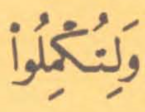 وَلِتُكْمِلُوا۟